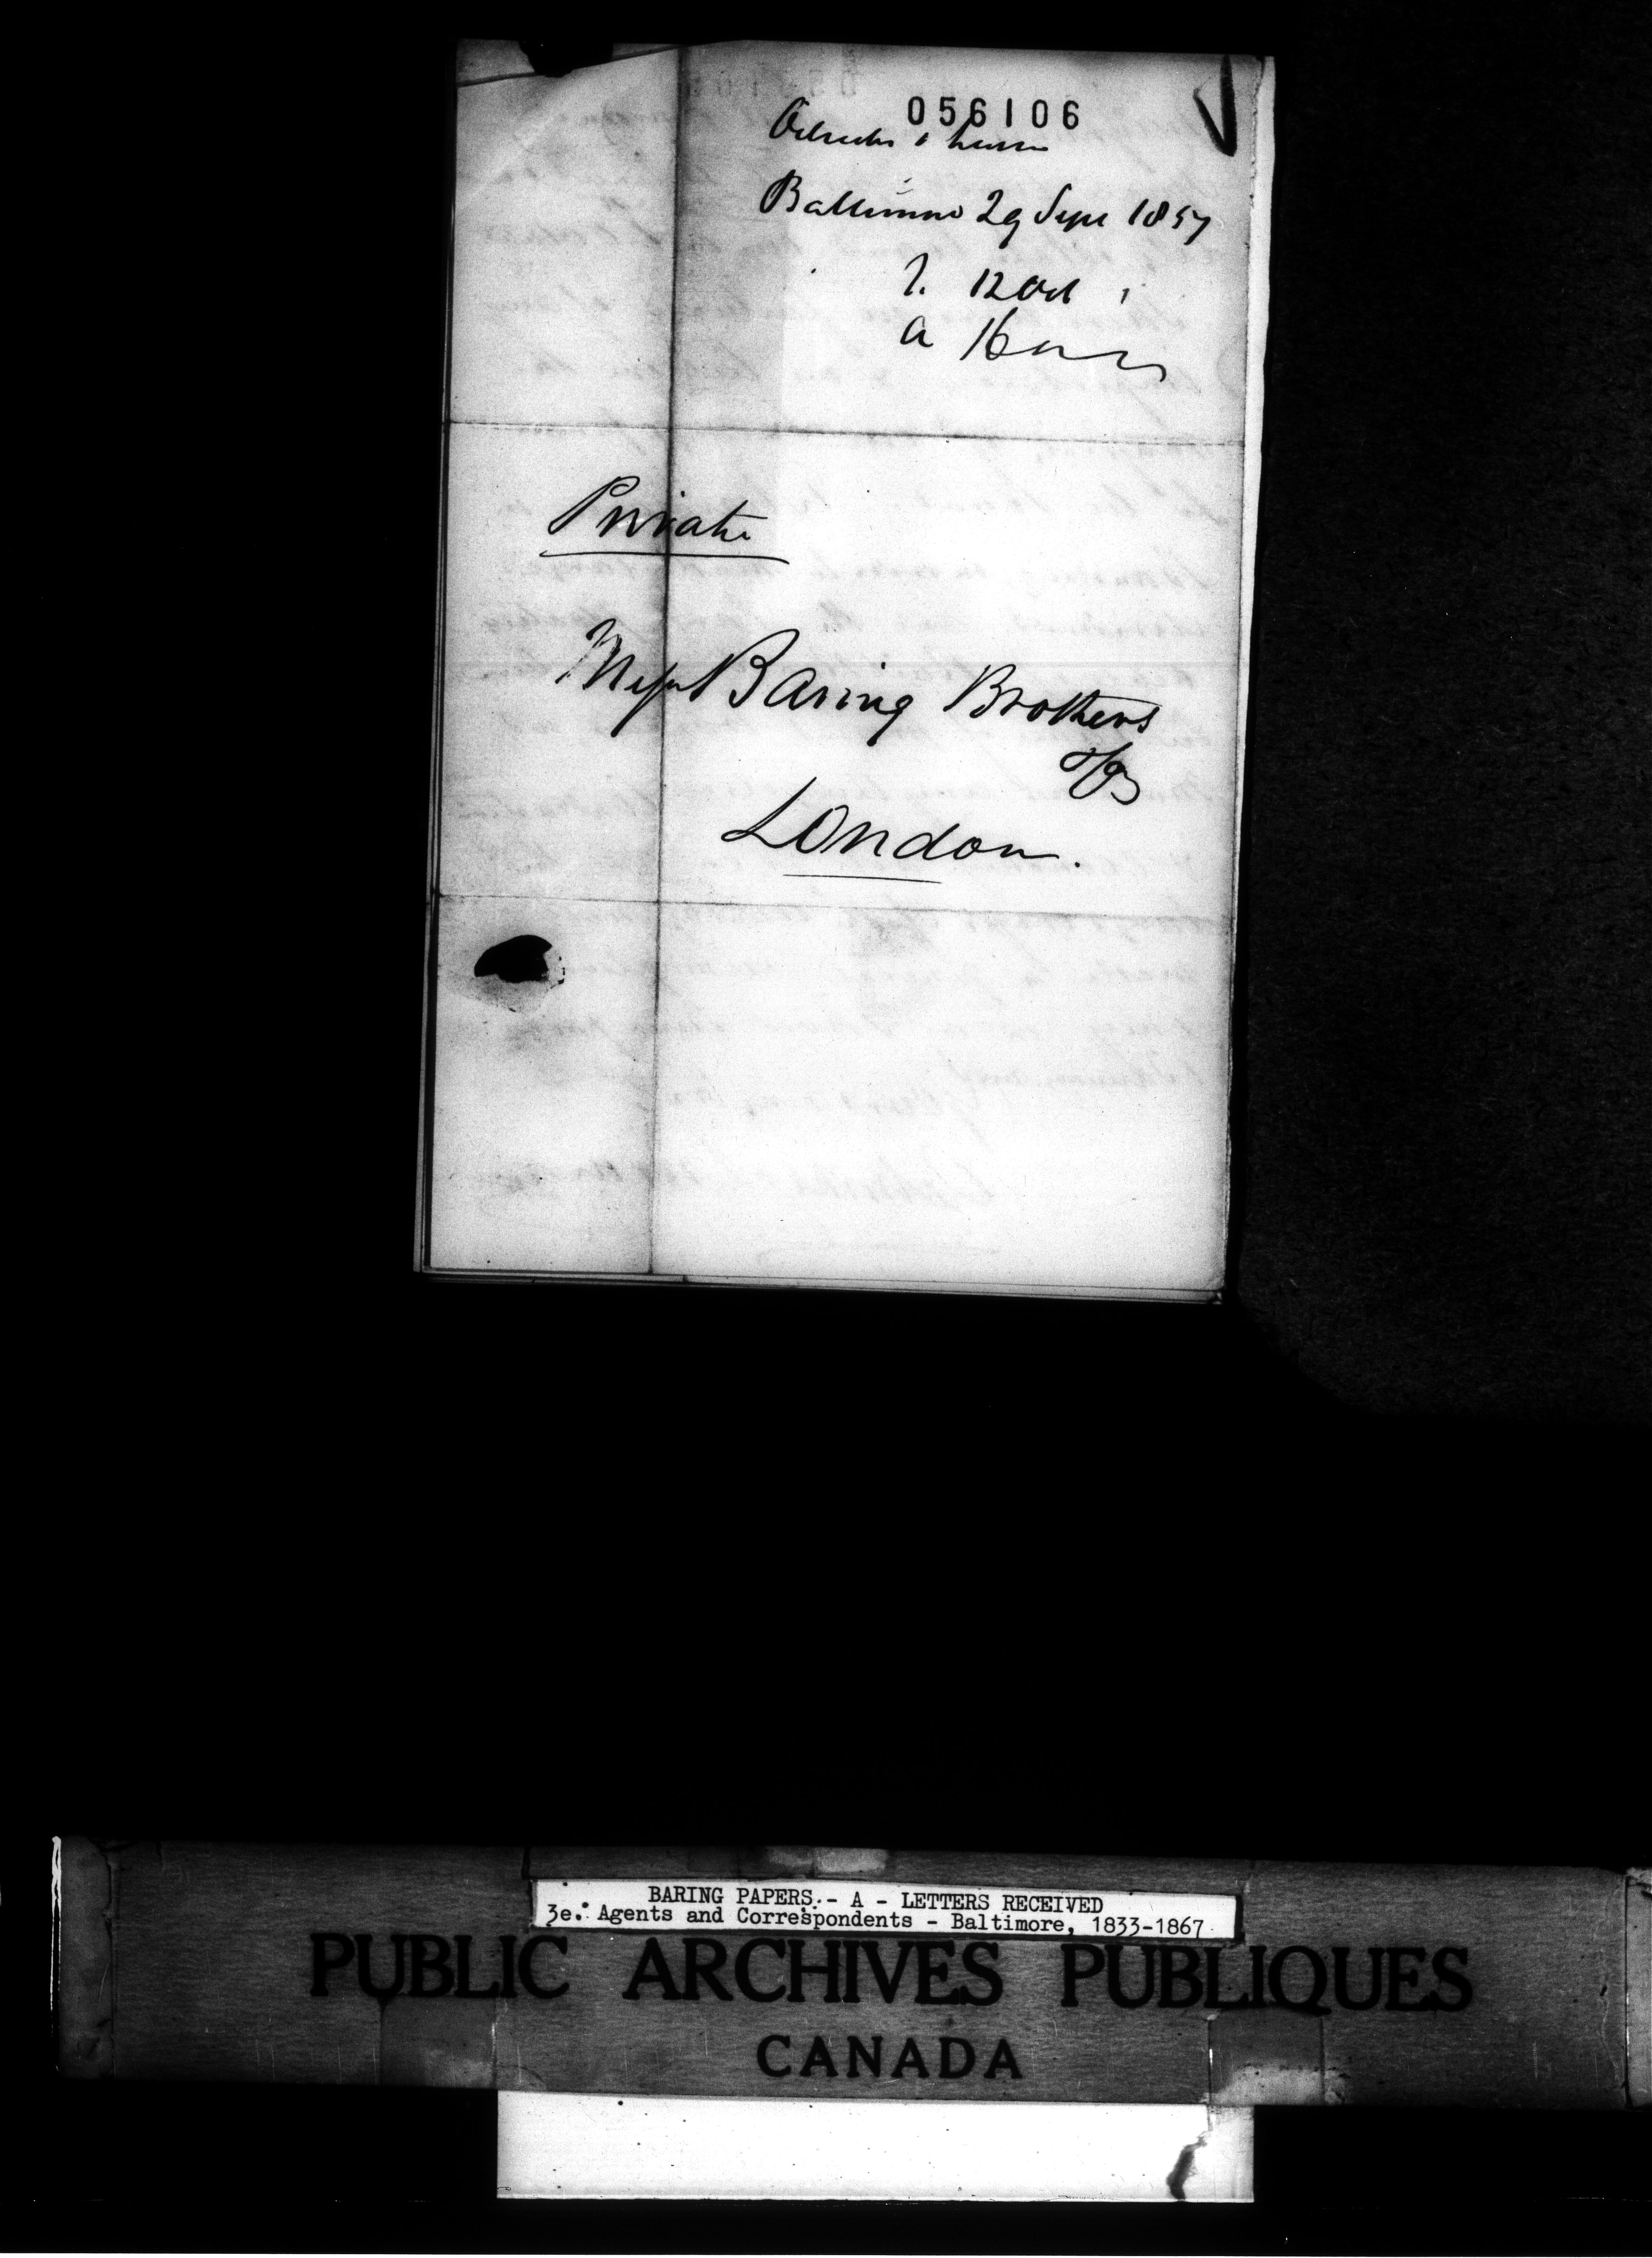 056106
Oelrichs & Lurman
Baltimore 29 Sept 1857
12 Oct
a 16
Private
Messrs Baring Brothers
& Co
London.
BARING PAPERS.- A - LETTERS RECEIVED
3e. Agents and Correspondents - Baltimore, 1833-1867
PUBLIC ARCHIVES PUBLIQUES
CANADA